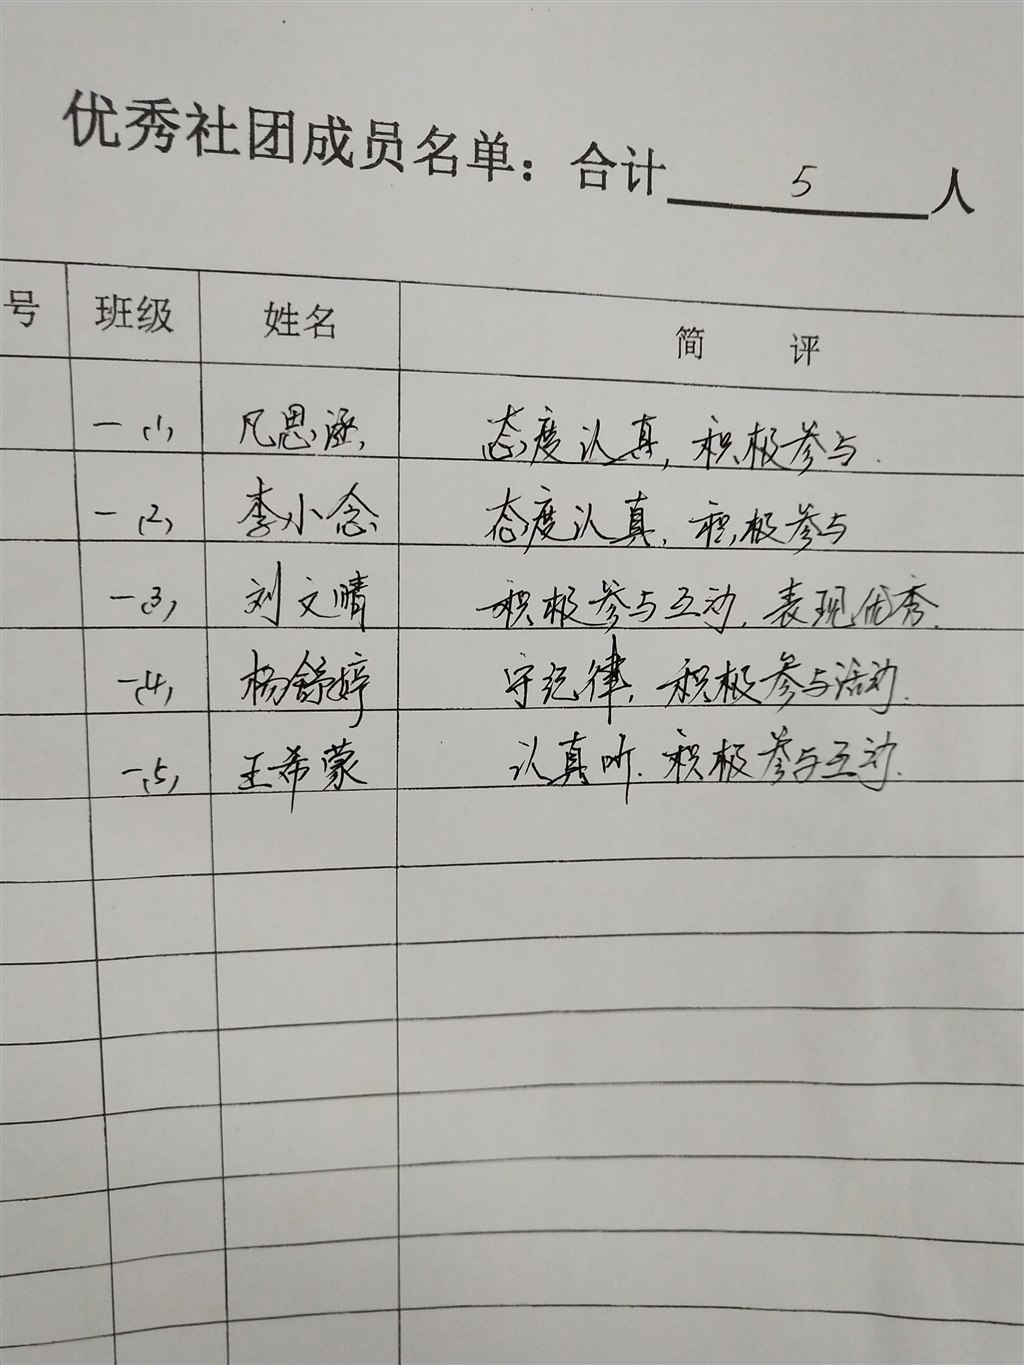 优秀社团成员名单：合计 5 人
号 班级 姓名 简 评
一（1） 凡思涵 态度认真，积极参与.
一（2） 李小念 态度认真，积极参与
一（3） 刘文晴 积极参与互动，表现优秀.
一（4） 杨舒婷 守纪律，积极参与活动.
一（5） 王希蒙 认真听.积极参与互动.